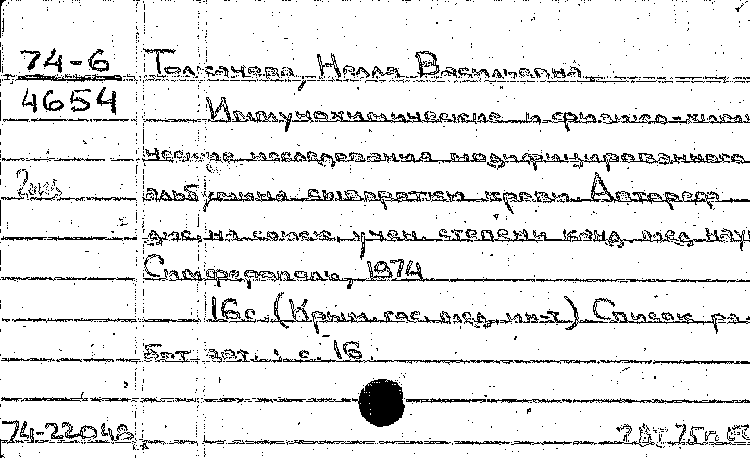 74-6
4654
Нелля Васильевна.
Иммунохимические и физико-хими
ческие исследования модифицированного
альбумина сыворотки крови Автореф
дис. на соиск. учен. степени канд. мед. нау
Симферополь, 1974
16с. (Крым. гос. мед. ин-т) Список ра-
бот авт.: с. 16.
74-22048